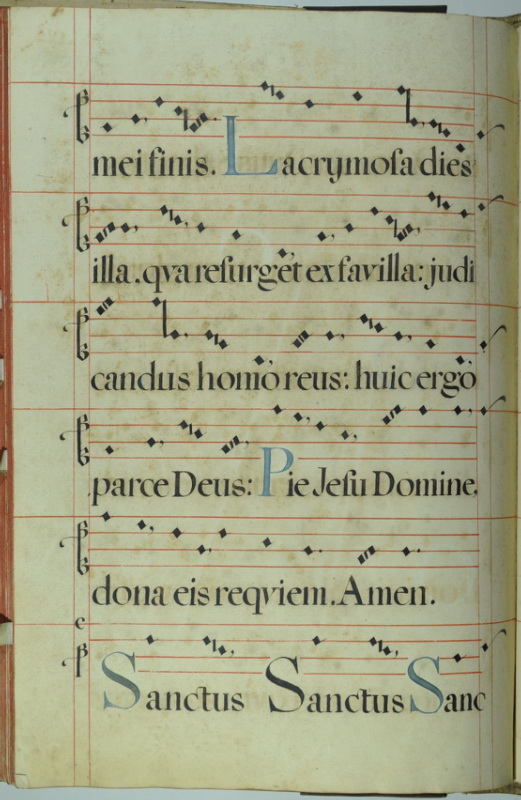 mei finis. Lacrymosa dies
illa.qva resurget ex favilla: judi
candus homo reus: huic ergo
parce Deus: Pie Jesu Domine,
dona eis reqviem. Amen.
c
Sanctus Sanctus Sanc